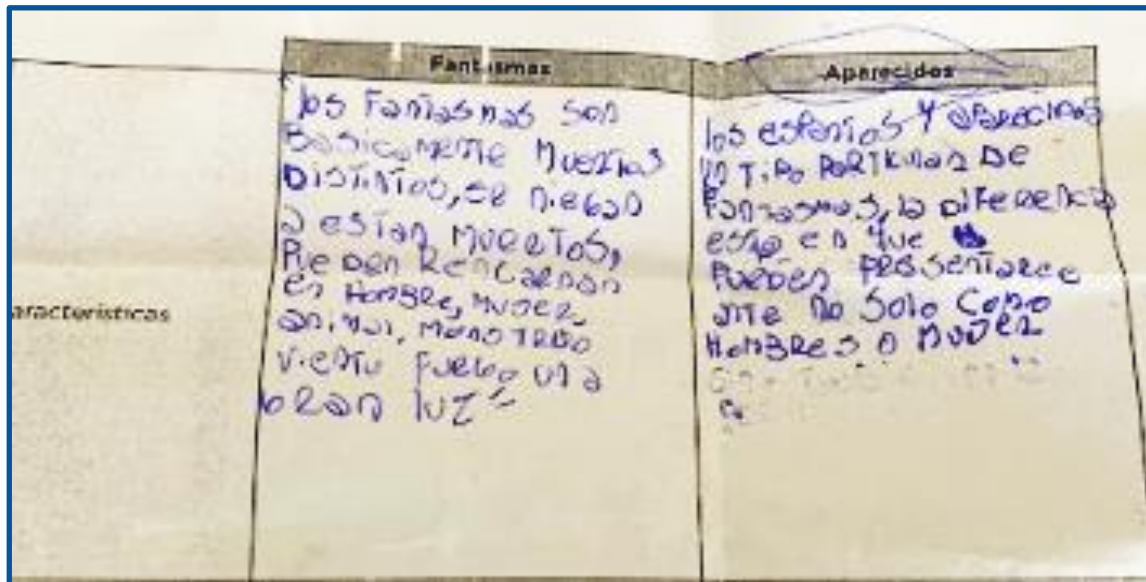 Fantasmas
Aparecidos
aracterísticas
los Fantasmas son
Basicamente Muertos
Distintos, se niegan
a estar Muertos,
Pueden Rencarnar
en Hombre, Mujer
animal, Monstruo
viento fuego una
gran luz
los espantos y aparecidos
un Tipo Particular de
Fantasmas, la diferencia
esta en que
Pueden presentarce
ante no solo Como
Hombres o Mujer